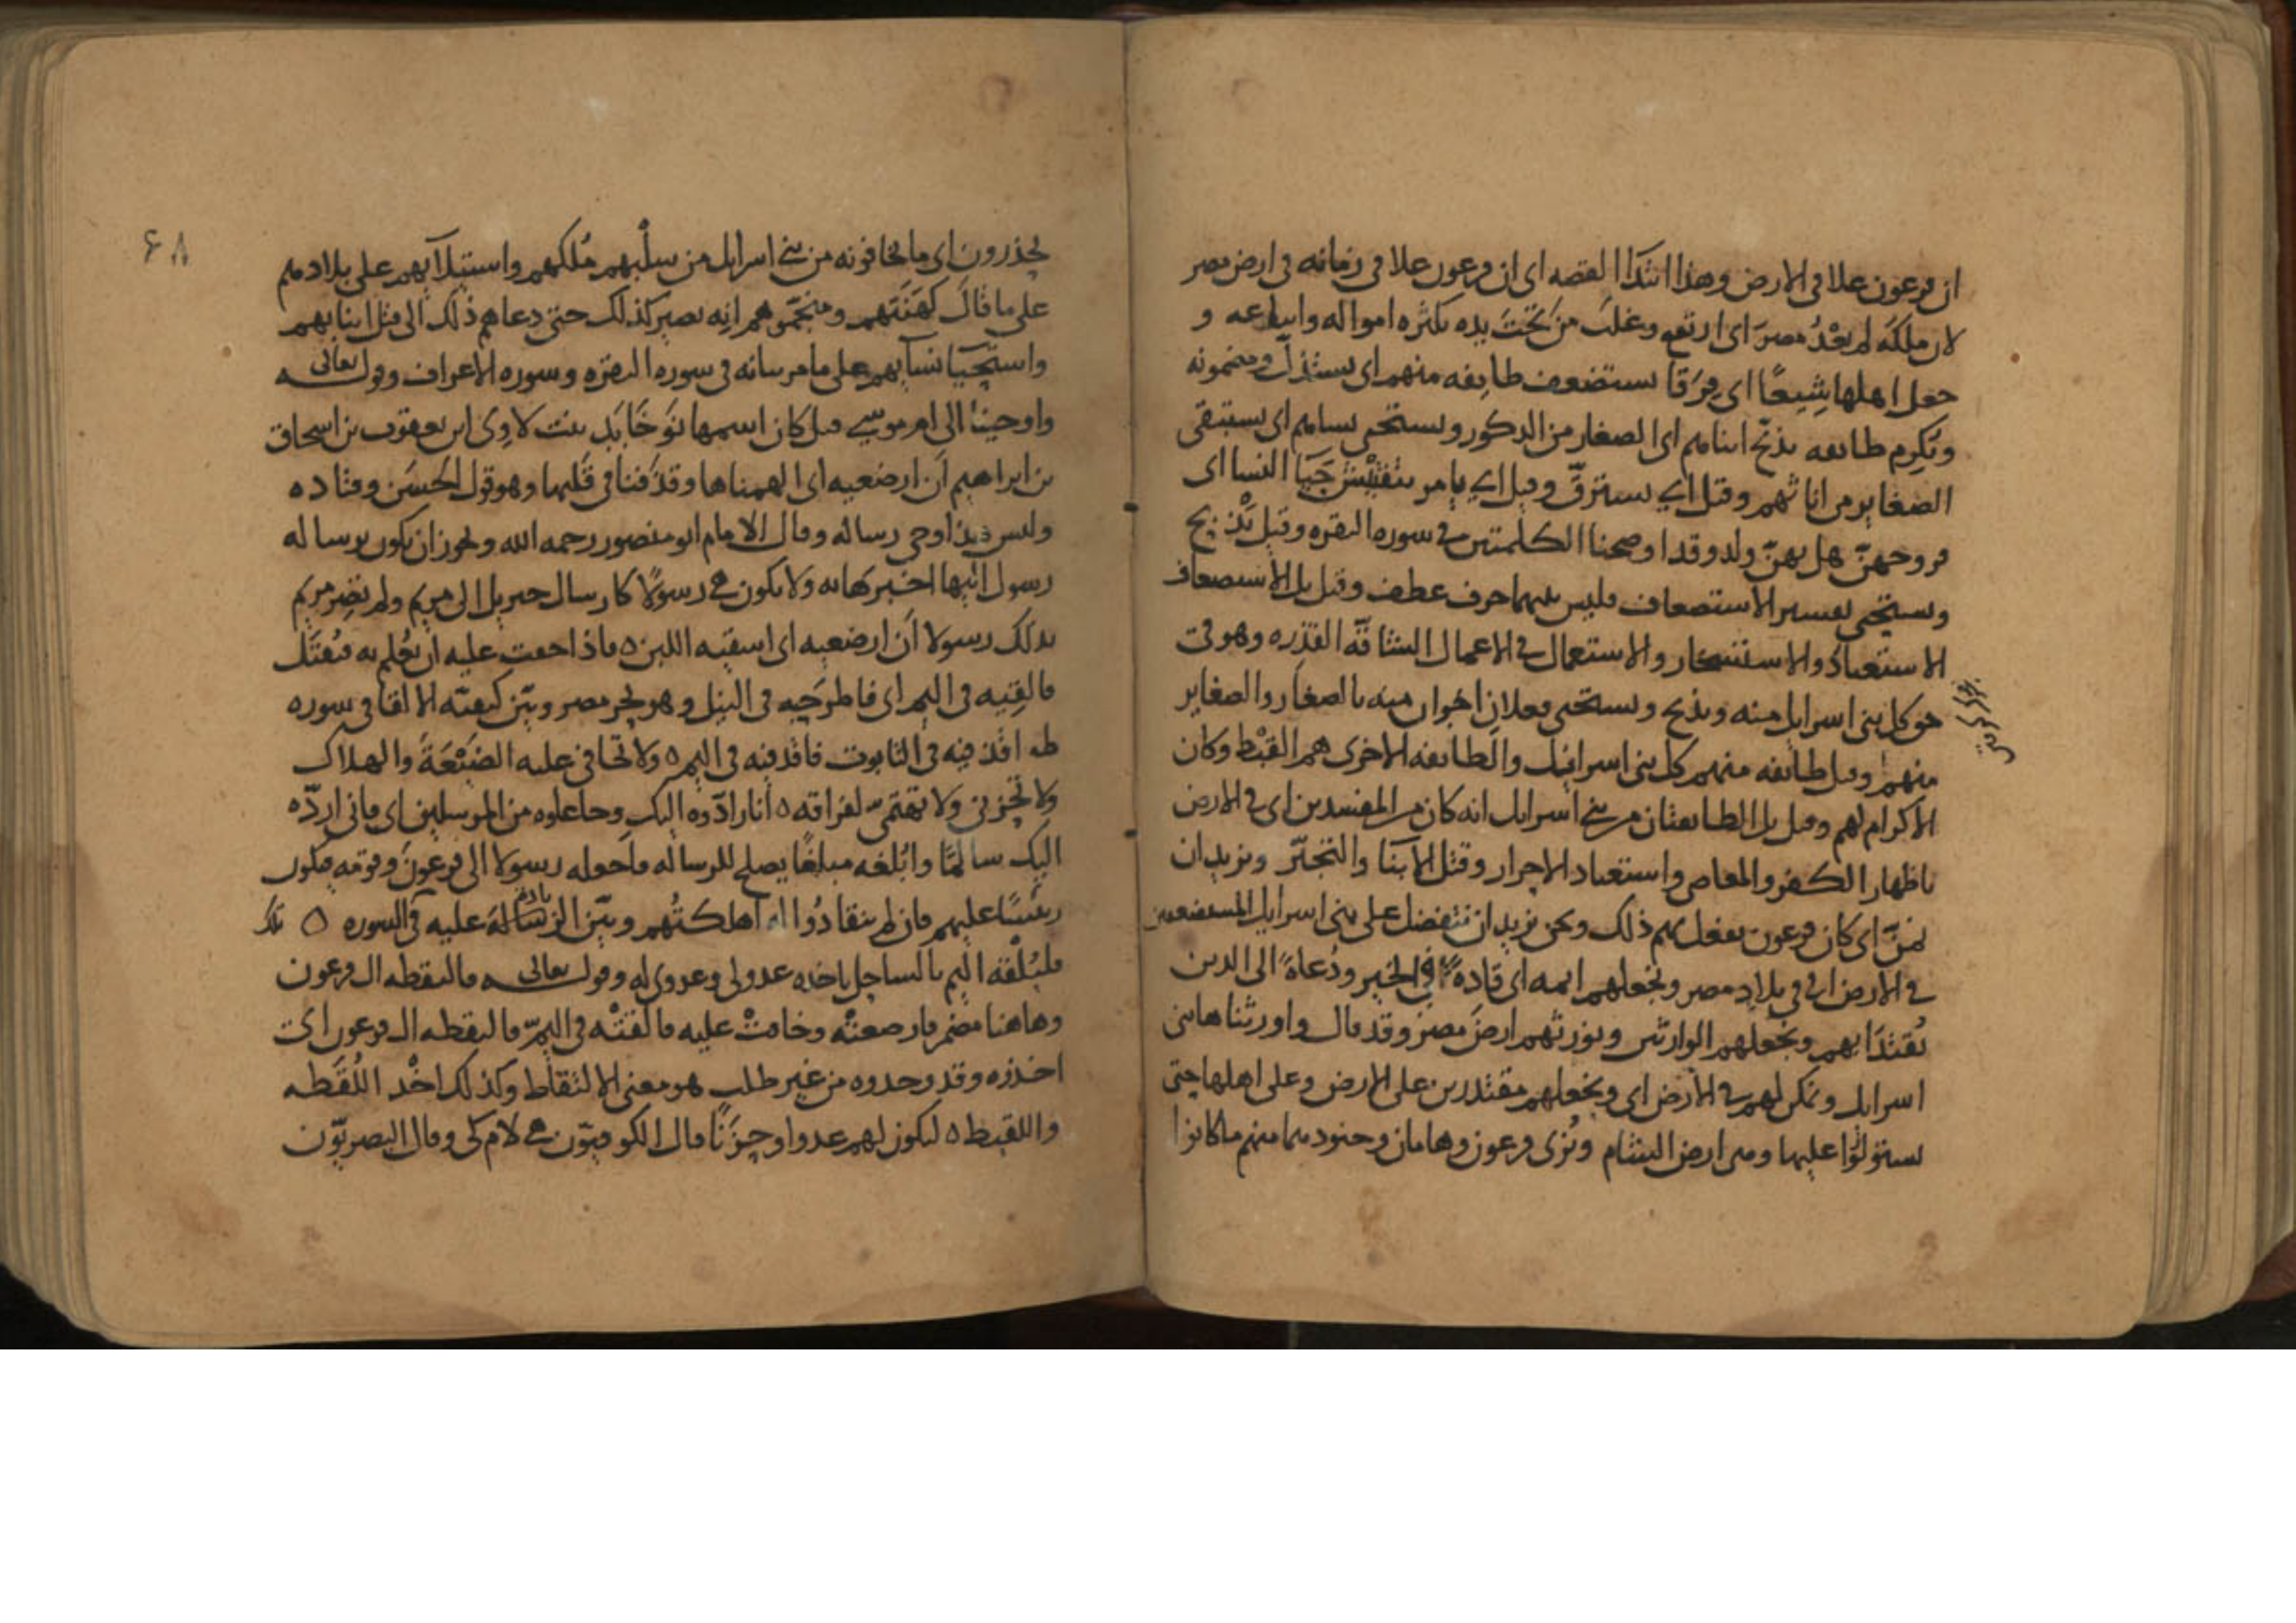 ان فرعون علا في الارض وهذا ابتدآ القصه اى ان فرعون علا في زمانه في ارض مصر
لان ملكه لم يعْدُ مصرَ اى ارتفع وغلبَ من تحتَ يده بكثره امواله واتباعه و
جعل اهلها شِيعًا اى فِرَقا يستضعف طايفه منهم اى يستذلّ
وتكرم طائفه يذبّح ابناهم اى الصغار من الذكور ويستحيى نساهم اى يستبقى
الصغاير من اناثهم وقيل اى يسترقّ وقيل اى يامر بتفتيش حَيَا النسا اى
فروجهنّ هل بهنّ ولد وقد اوضحنا الكلمتين في سوره البقره وقيل يذبح
ويستحيى تفسير الاستضعاف فليس بينهما حرف عطف وقيل بل الاستضعاف
الاستعباد والاستسخار والاستعمال في الاعمال الشاقّه القذره وهو في
حق كل بني اسرايل منه ويذبح ويستحيى فعلان اخران منه بالصغار والصغاير
منهم وقيل طائفه منهم كل بني اسرائيل والطائفه الاخرى هم القِبْط وكان
الاكرام لهم وقيل بل الطائفتان من بني اسرايل انه كان من المفسدين اى في الارض
باظهار الكفر والمعاصي واستعباد الاحرار وقتل الابنآ والتجبّر ونريد ان
نمنّ اى كان فرعون يفعل بهم ذلك ونحن نريد ان نتفضل على بني اسرايل المستضعفين
في الارض اى في بلاد مصر ونجعلهم ايمه اى قادةً في الخير ودُعاةً الى الدين
يُقتدَا بهم ونجعلهم الوارثين ونورثهم ارضَ مصر وقد قال واورثناها بني
اسرايل ونمكن لهم في الارض اى ونجعلهم مقتدرين على الارض وعلى اهلها حتى
يستولوا عليها وعلى ارض الشام ونُرى فرعون وهامان وجنودهما منهم ما كانوا
۶۸
يحذرون اى ما يخافونه من بني اسرايل من سلْبهم مُلكهم واستيلآيهم على بلادهم
على ما قال كَهَنَتهم ومنجّموهم انه يصير كذلك حتى دعاهم ذلك الى قتل ابنايهم
واستحيا نسآيهم على ما مر بيانه في سوره البقره وسوره الاعراف وقوله تعالى
واوحينا الى ام موسى قيل كان اسمها بنت لاوِى ابن يعقوب بن اسحاق
بن ابراهيم اَن ارضعيه اى الهمناها وقذَفنا في قلبها وهو قول الحسَن وقتاده
وليس هذا وحى رسالة وقال الامام ابو منصور رحمه الله ويجوز ان يكون برساله
رسول اليها اخبرها به ولا يكون هى رسولًا كارسال جبريل الى مريم ولم تصِر مريم
بذلك رسولا اَن ارضعيه اى اسقيه اللبن ه فاذا خفت عليه ان يُعلم به فيُقتَل
فالقِيه في اليم اى فاطرَحِيه في النيل وهو بحر مصر وبيّن كيفيّه الالقا في سوره
طه اقذفيه في التابوت فاقذفيه في اليم ه ولا تخافي عليه الضَيْعَةَ والهلاك
ولا تحزني ولا تغتمّى لفراقه ه انا رادّوه اليك وجاعلوه من المرسلين اى فاني اردّه
اليك سالمًا وابُلغه مبلغًا يصلح للرساله فاجعله رسولا الى فرعونَ وقومه فيكون
رئيسًا عليهم فان لم ينقادُوا له اهلكتُهم وبيّن الرسالة عليه في السوره ه
فليُلْقه اليم بالساحل ياخذه عدو لي وعدو له وقوله تعالى فالتقطه ال فرعون
وهاهنا مضمر فارضعتْه وخافتْ عليه فالقتْه في اليمّ فالتقطه ال فرعون اى
اخذوه وقد وجدوه من غير طلب هو معنى الالتقاط وكذلك اخْذ اللُقَطه
واللقيط ه ليكون لهم عدوا وحَزَنًا قال الكوفيّون هى لام كى وقال البصريّون